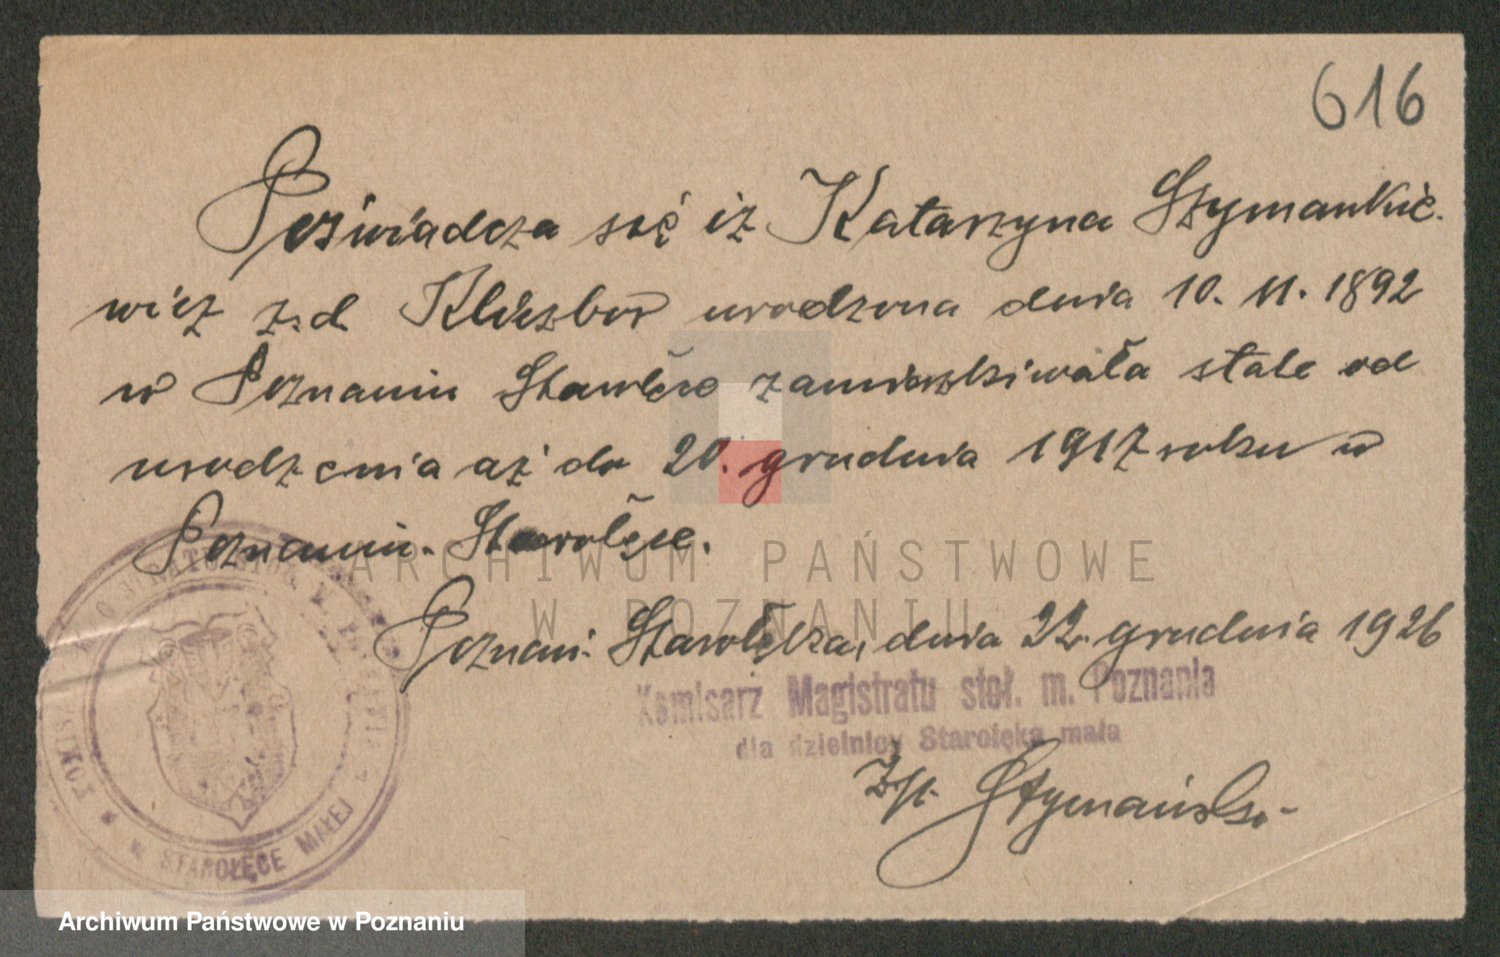 616
Poświadcza się iż Katarzyna Szymankie-
wicz z d. Kliszbor urodzona dnia 10. 11. 1892
w Poznaniu Starołęce zamieszkiwała stale od
urodzenia aż do 20. grudnia 1917 roku w
Poznaniu-Starołęce.
ARCHIWUM PAŃSTWOWE
W POZNANIU
Poznań-Starołęka, dnia 22. grudnia 1926
Komisarz Magistratu stoł. m. Poznania
dla dzielnicy Starołęka mała
Szymański
w STAROŁĘCE MAŁEJ
Archiwum Państwowe w Poznaniu